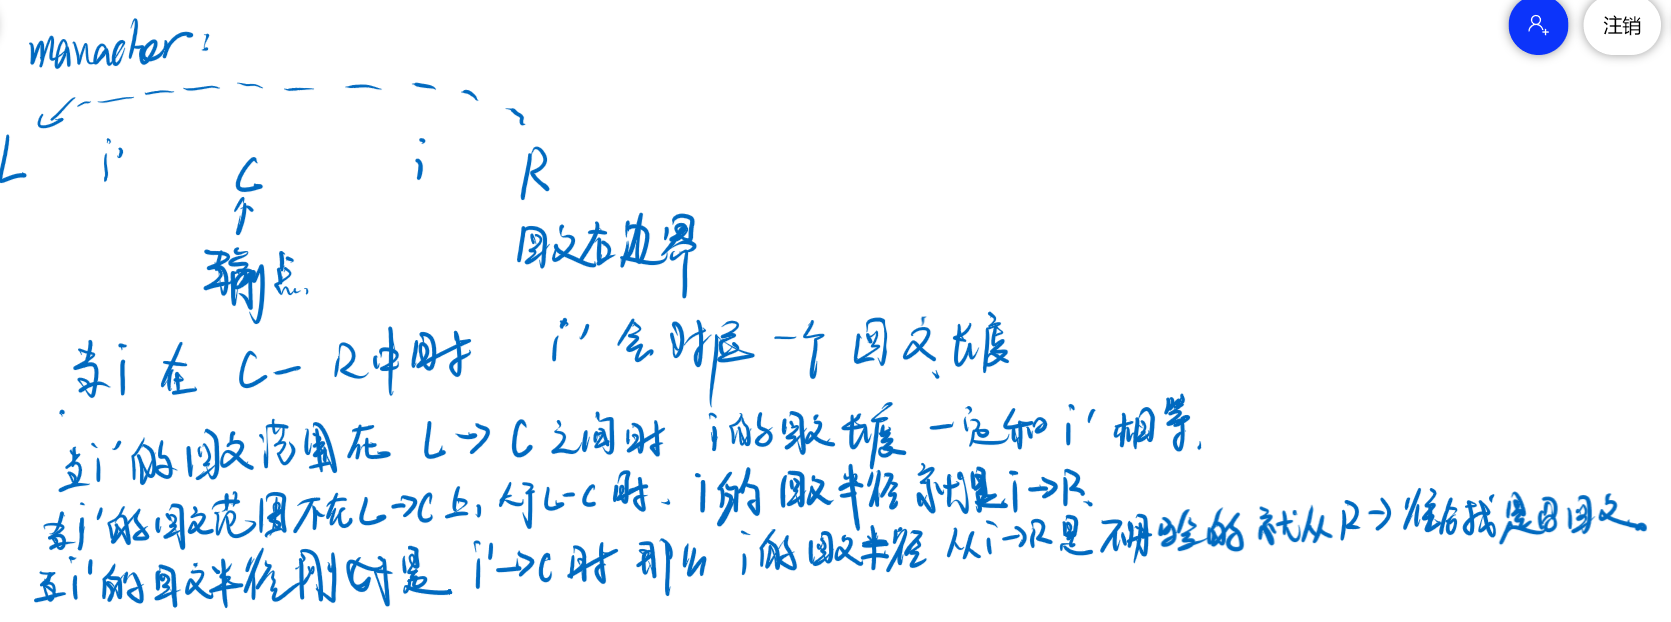 manacher:
注销
L i' C i R
回文右边界
轴点.
当i在 C-R中间时 i'会对应一个回文长度
当i'的回文范围在 L→C之间时 i的回文长度一定和i'相等.
当i'的回文范围不在L→C上, 大于L-C时. i的回文半径就是i→R.
当i'的回文半径刚好是 i'→C时 那么 i的回文半径 从i→R是不用验的 就从R→往后找是否回文.